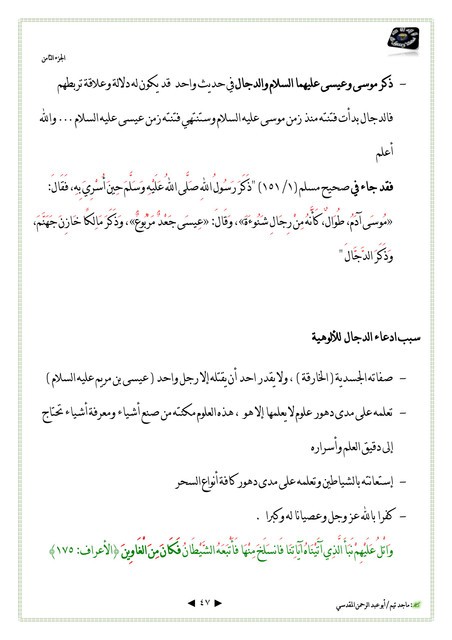 الجزء الثامن
– ذكر موسى وعيسى عليهما السلام والدجال في حديث واحد قد يكون له دلالة وعلاقة تربطهم
فالدجال بدأت فتنته منذ زمن موسى عليه السلام وستنتهي فتنته زمن عيسى عليه السلام ... والله
أعلم
فقد جاء في صحيح مسلم (١/ ١٥١) "ذَكَرَ رَسُولُ اللهِ صَلَّى اللهُ عَلَيْهِ وَسَلَّمَ حِينَ أُسْرِيَ بِهِ، فَقَالَ:
«مُوسَى آدَمُ، طُوَالٌ، كَأَنَّهُ مِنْ رِجَالِ شَنُوءَةَ»، وَقَالَ: «عِيسَى جَعْدٌ مَرْبُوعٌ»، وَذَكَرَ مَالِكًا خَازِنَ جَهَنَّمَ،
وَذَكَرَ الدَّجَّالَ"
سبب ادعاء الدجال للألوهية
– صفاته الجسدية ( الخارقة ) ، ولا يقدر احد أن يقتله إلا رجل واحد ( عيسى بن مريم عليه السلام )
– تعلمه على مدى دهور علوم لا يعلمها إلا هو ، هذه العلوم مكنته من صنع أشياء ومعرفة أشياء تحتاج
إلى دقيق العلم وأسراره
– إستعانته بالشياطين وتعلمه على مدى دهور كافة أنواع السحر
– كفرا بالله عز وجل وعصيانا له وكبرا .
وَاتْلُ عَلَيْهِمْ نَبَأَ الَّذِي آتَيْنَاهُ آيَاتِنَا فَانسَلَخَ مِنْهَا فَأَتْبَعَهُ الشَّيْطَانُ فَكَانَ مِنَ الْغَاوِينَ ﴿الأعراف: ١٧٥﴾
ماجد تيم / أبو عبد الرحمن المقدسي
◄ ٤٧ ►